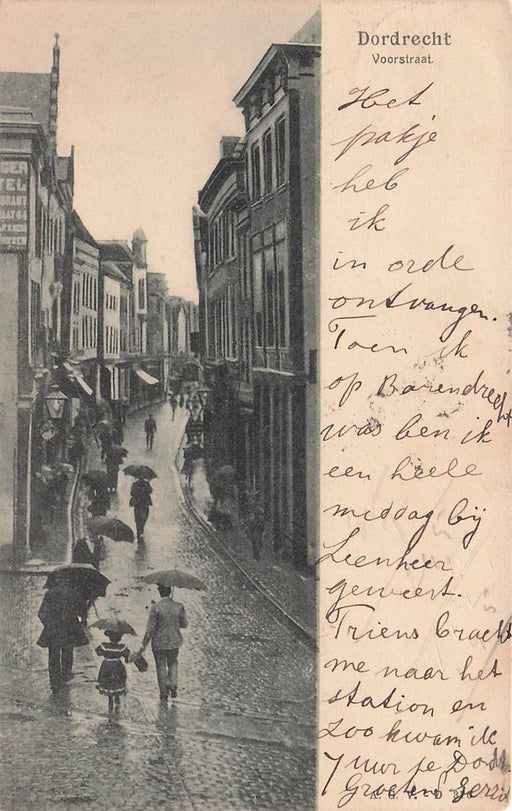 Dordrecht
Voorstraat.
TEL
Het
pakje
heb
ik
in orde
ontvangen.
Toen ik
op Barendrecht
was ben ik
een heele
middag bij
Leenheer
geweest.
Triens bracht
me naar het
station en
zoo kwam ik
7 uur te Dodt.
Groeten